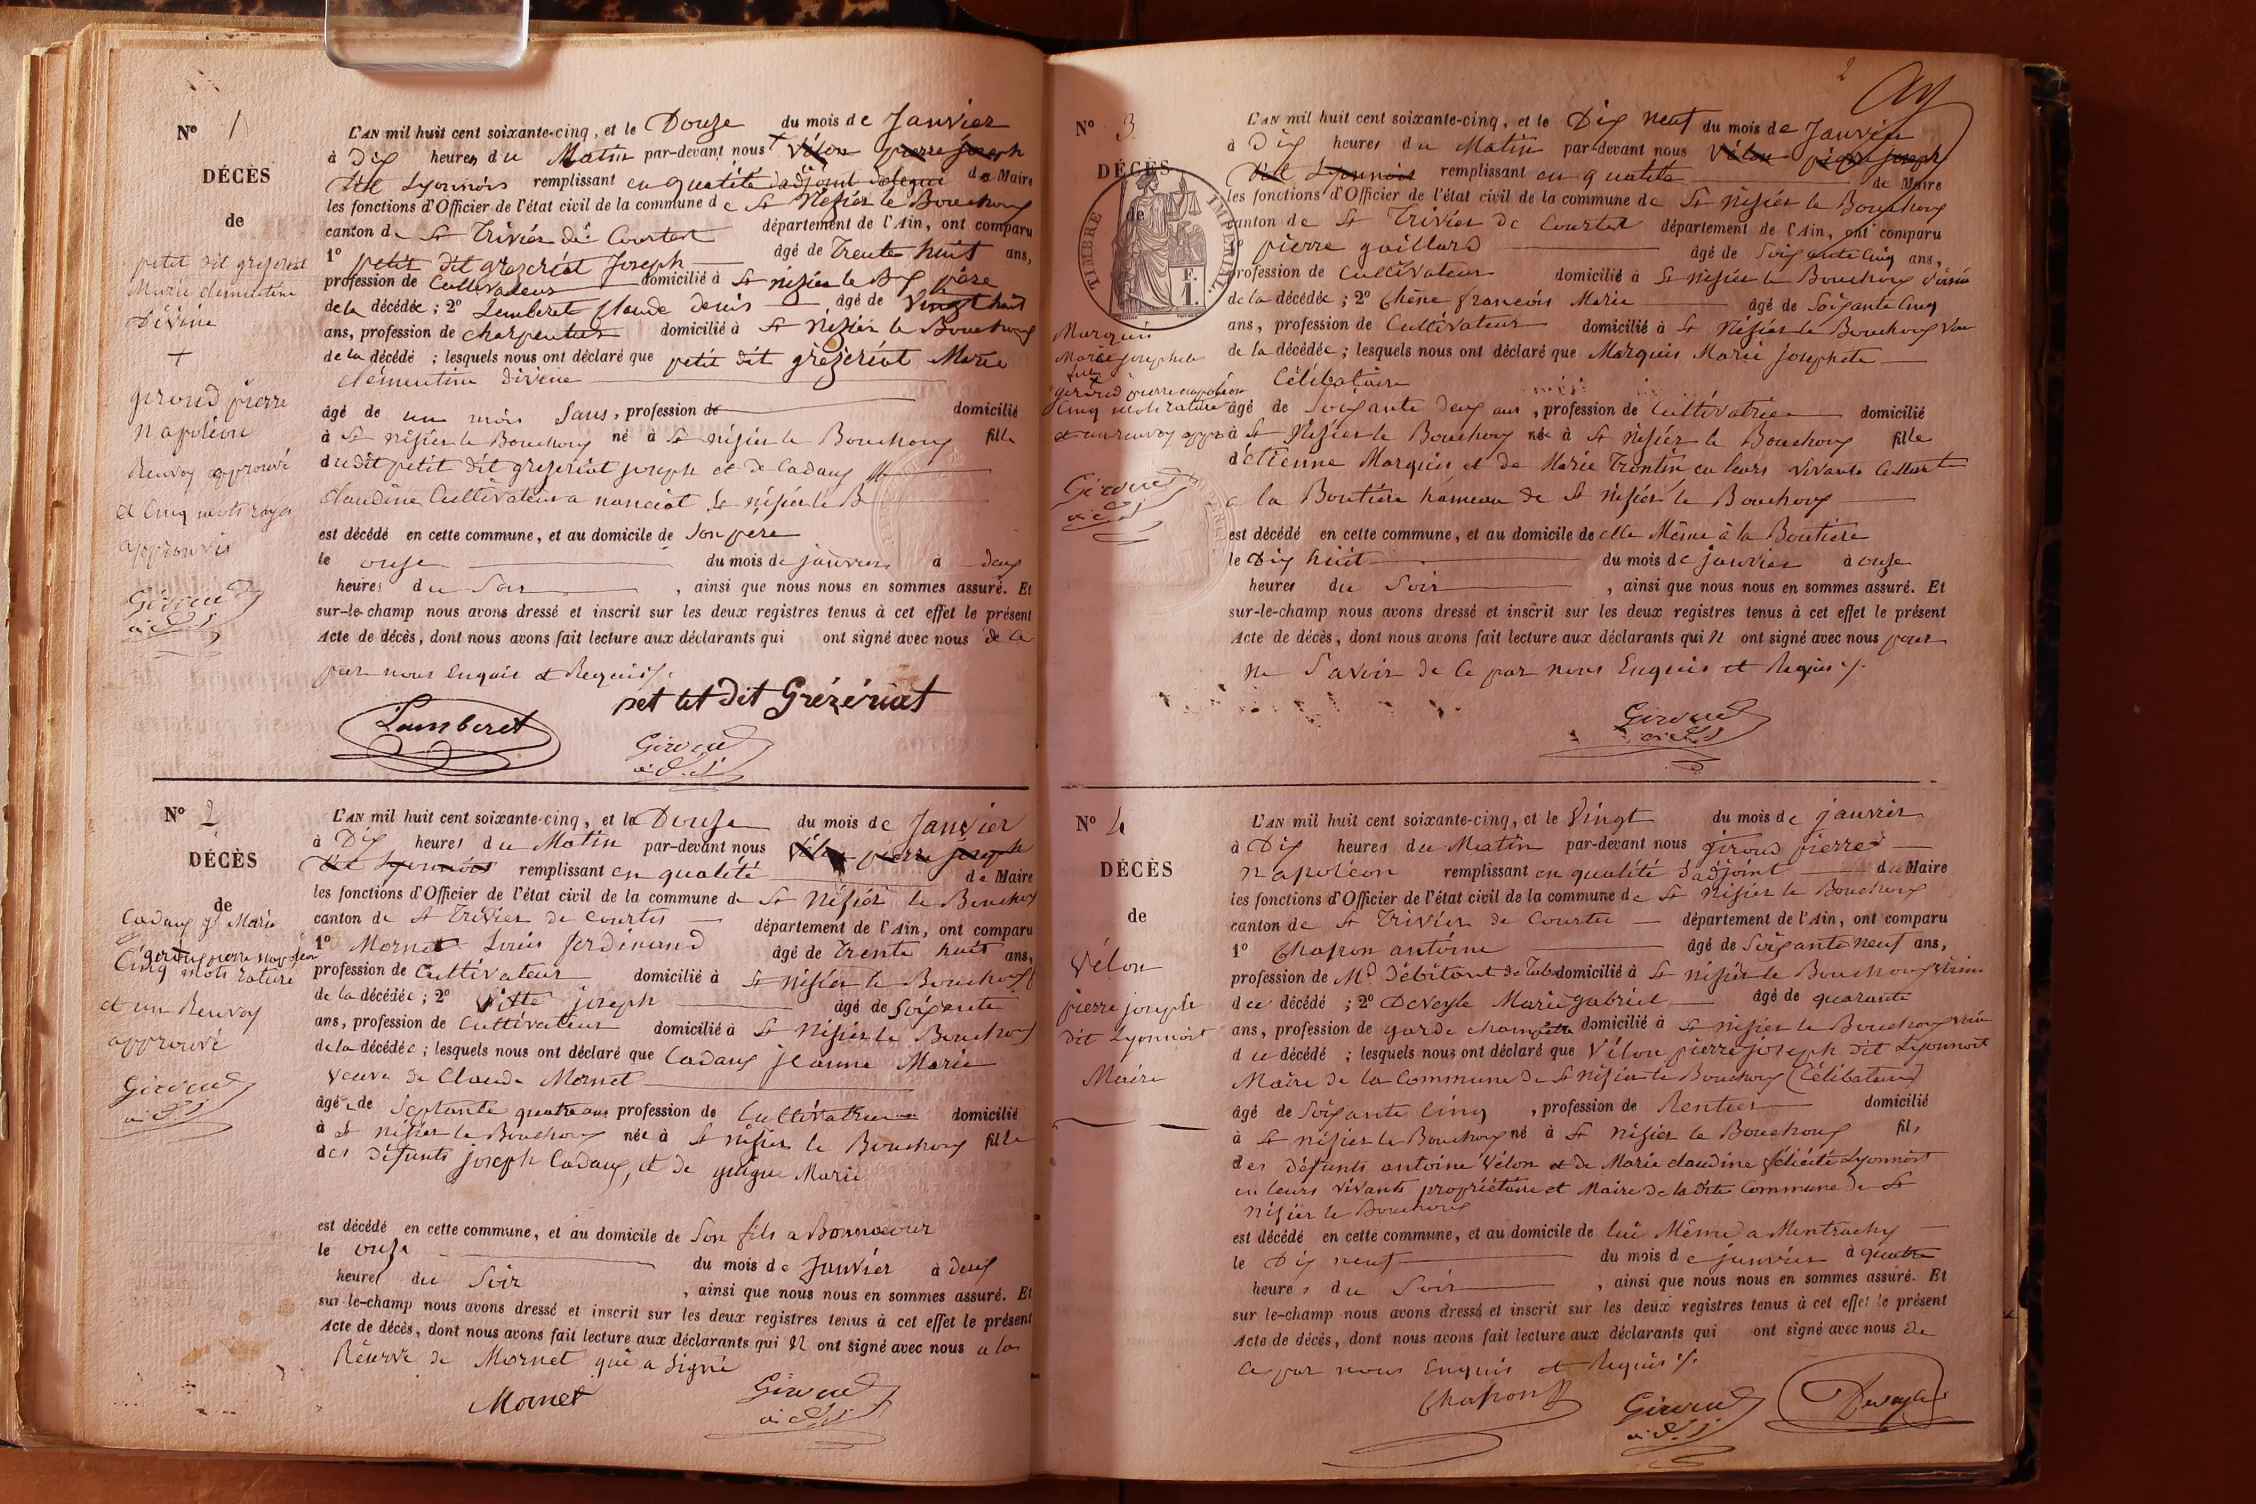 N° 1
DÉCÈS
de
petit dit grézériat
Marie clémentine
Divine
+
giroud pierre
napoléon
Renvoy approuvé
et Cinq mots rayés
approuvés
Giroud
L'AN mil huit cent soixante-cinq, et le Douze du mois de Janvier
à Dix heures du Matin par-devant nous + Vélon pierre joseph
dit Lyonnois remplissant en qualité d'adjoint délégué de Maire
les fonctions d'Officier de l'état civil de la commune de St Nisier le Bouchoux
canton de St Trivier de Courtes département de l'Ain, ont comparu
1° petit dit grézériat Joseph âgé de Trente huit ans,
profession de Cultivateur domicilié à St nisier le Bx père
de la décédée ; 2° Lamberet Claude denis âgé de Vingt huit
ans, profession de charpentier domicilié à St Nisier le Bouchoux
de la décédé ; lesquels nous ont déclaré que petit dit grézériat Marie
clémentine divine
âgé de un mois Sans, profession de domicilié
à St nisier le Bouchoux né à St nisier le Bouchoux fille
du dit petit dit grézériat joseph et de Cadaux
claudine Cultivateurs a nanciat St nisier le B
est décédé en cette commune, et au domicile de Son père
le onze du mois de janvier à deux
heures du Soir , ainsi que nous nous en sommes assuré. Et
sur-le-champ nous avons dressé et inscrit sur les deux registres tenus à cet effet le présent
Acte de décès, dont nous avons fait lecture aux déclarants qui ont signé avec nous de ce
par nous Enquis et Requis ./.
Lamberet
petit dit Grézériat
Giroud
N° 2
DÉCÈS
de
Cadaux jne Marie
giroud pierre napoléon
Cinq mots raturé
et un Renvoy
approuvé
Giroud
L'AN mil huit cent soixante-cinq, et le Douze du mois de Janvier
à Dix heures du Matin par-devant nous Vélon pierre joseph
dit Lyonnois remplissant en qualité de Maire
les fonctions d'Officier de l'état civil de la commune de St Nisier le Bouchoux
canton de St Trivier de Courtes département de l'Ain, ont comparu
1° Mornet Louis ferdinand âgé de Trente huit ans,
profession de Cultivateur domicilié à St nisier le Bouchoux
de la décédée ; 2° Vitte joseph âgé de Soixante
ans, profession de Cultivateur domicilié à St Nisier le Bouchoux
de la décédée ; lesquels nous ont déclaré que Cadaux jeanne Marie
Veuve de Claude Mornet
âgée de Septante quatre ans profession de Cultivatrice domicilié
à St nisier le Bouchoux née à St nisier le Bouchoux fille
des défunts joseph Cadaux, et de guigue Marie
est décédé en cette commune, et au domicile de Son fils a Bonnacour
le onze du mois de Janvier à deux
heures du Soir , ainsi que nous nous en sommes assuré. Et
sur-le-champ nous avons dressé et inscrit sur les deux registres tenus à cet effet le présent
Acte de décès, dont nous avons fait lecture aux déclarants qui N ont signé avec nous a la
Réserve de Mornet qui a Signé
Mornet
Giroud
2
N° 3
DÉCÈS
de
TIMBRE IMPÉRIAL
F.
1.
Marquis
Marie josephete
giroud pierre napoléon
Cinq mots raturé
et un renvoy appé
Giroud
L'AN mil huit cent soixante-cinq, et le Dix neuf du mois de Janvier
à Dix heures du Matin par-devant nous Vélon pierre joseph
dit Lyonnois remplissant en qualité de Maire
les fonctions d'Officier de l'état civil de la commune de St Nisier le Bouchoux
canton de St Trivier de Courtes département de l'Ain, ont comparu
1° pierre gaillard âgé de Soixante Cinq ans,
profession de Cultivateur domicilié à St nisier le Bouchoux voisin
de la décédée ; 2° Chêne françois Marie âgé de Soixante Cinq
ans, profession de Cultivateur domicilié à St Nisier le Bouchoux
de la décédée ; lesquels nous ont déclaré que Marquis Marie josephete
Célibataire
âgé de Soixante deux ans , profession de Cultivatrice domicilié
à St Nisier le Bouchoux née à St nisier le Bouchoux fille
d'étienne Marquis et de Marie Trontin en leurs Vivants Cultivateurs
a la Boutière hameau de St nisier le Bouchoux
est décédé en cette commune, et au domicile de elle Même à la Boutière
le Dix huit du mois de janvier à onze
heures du Soir , ainsi que nous nous en sommes assuré. Et
sur-le-champ nous avons dressé et inscrit sur les deux registres tenus à cet effet le présent
Acte de décès, dont nous avons fait lecture aux déclarants qui N ont signé avec nous pour
ne Savoir de Ce par nous Enquis et Requis ./.
Giroud
N° 4
DÉCÈS
de
Vélon
pierre joseph
dit Lyonnois
Maire
L'AN mil huit cent soixante-cinq, et le Vingt du mois de janvier
à Dix heures du Matin par-devant nous giroud pierre
napoléon remplissant en qualité d'adjoint du Maire
les fonctions d'Officier de l'état civil de la commune de St Nisier le Bouchoux
canton de St Trivier de Courtes département de l'Ain, ont comparu
1° Chapon antoine âgé de Soixante neuf ans,
profession de Md Débitant de Tabac domicilié à St nisier le Bouchoux voisin
du décédé ; 2° Deveyle Marie gabriel âgé de quarante
ans, profession de garde champêtre domicilié à St nisier le Bouchoux voisin
du décédé ; lesquels nous ont déclaré que Vélon pierre joseph dit Lyonnois
Maire de la Commune de St nisier le Bouchoux (Célibataire)
âgé de Soixante Cinq , profession de Rentier domicilié
à St nisier le Bouchoux né à St nisier le Bouchoux fils
des défunts antoine Vélon et de Marie claudine félicité Lyonnois
en leurs Vivants propriétaire et Maire de la dite Commune de St
Nisier le Bouchoux
est décédé en cette commune, et au domicile de lui Même a Montrachy
le Dix neuf du mois de janvier à quatre
heures du Soir , ainsi que nous nous en sommes assuré. Et
sur le-champ nous avons dressé et inscrit sur les deux registres tenus à cet effet le présent
Acte de décès, dont nous avons fait lecture aux déclarants qui ont signé avec nous de
ce par nous Enquis et Requis ./.
Chapon
Giroud
Deveyle